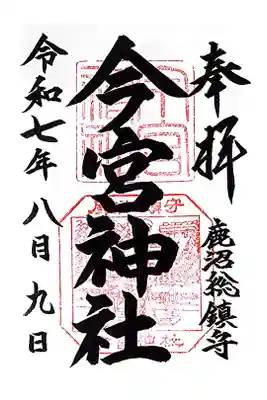 奉拝
鹿沼総鎮守
今宮神社
令和七年八月九日